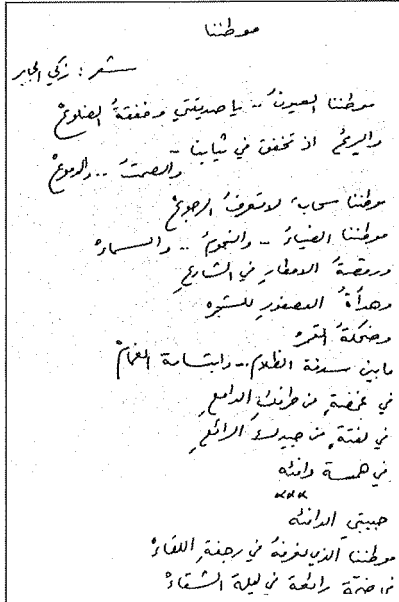 موطننا
شعر : زكي الجابر
موطننا العيونُ .. يا صديقتي وخفقةُ الضلوعْ
والريحُ اذ تخفق في ثيابنا ..
والصمتُ .. والدموعْ
موطننا سحابة لا تعرفُ الرجوعْ
موطننا الضياءُ .. والنجومُ .. والسماءْ
ورقصةُ الامطارِ في الشارعِ
وهدأةُ العصفورِ للشجره
وضحكةُ القمرْ
ما بين سدفة الظلام .. وابتسامة الغمامْ
في غمضةٍ من طرفكِ الدامعِ
في لفتةٍ من جيدكِ الرائعِ
في همسة دافئه
×××
حبيبتي الدافئه
موطننا الذي نعرفهُ في رجفةِ اللقاءْ
في ضمّة رائعة في ليلة الشتاءْ